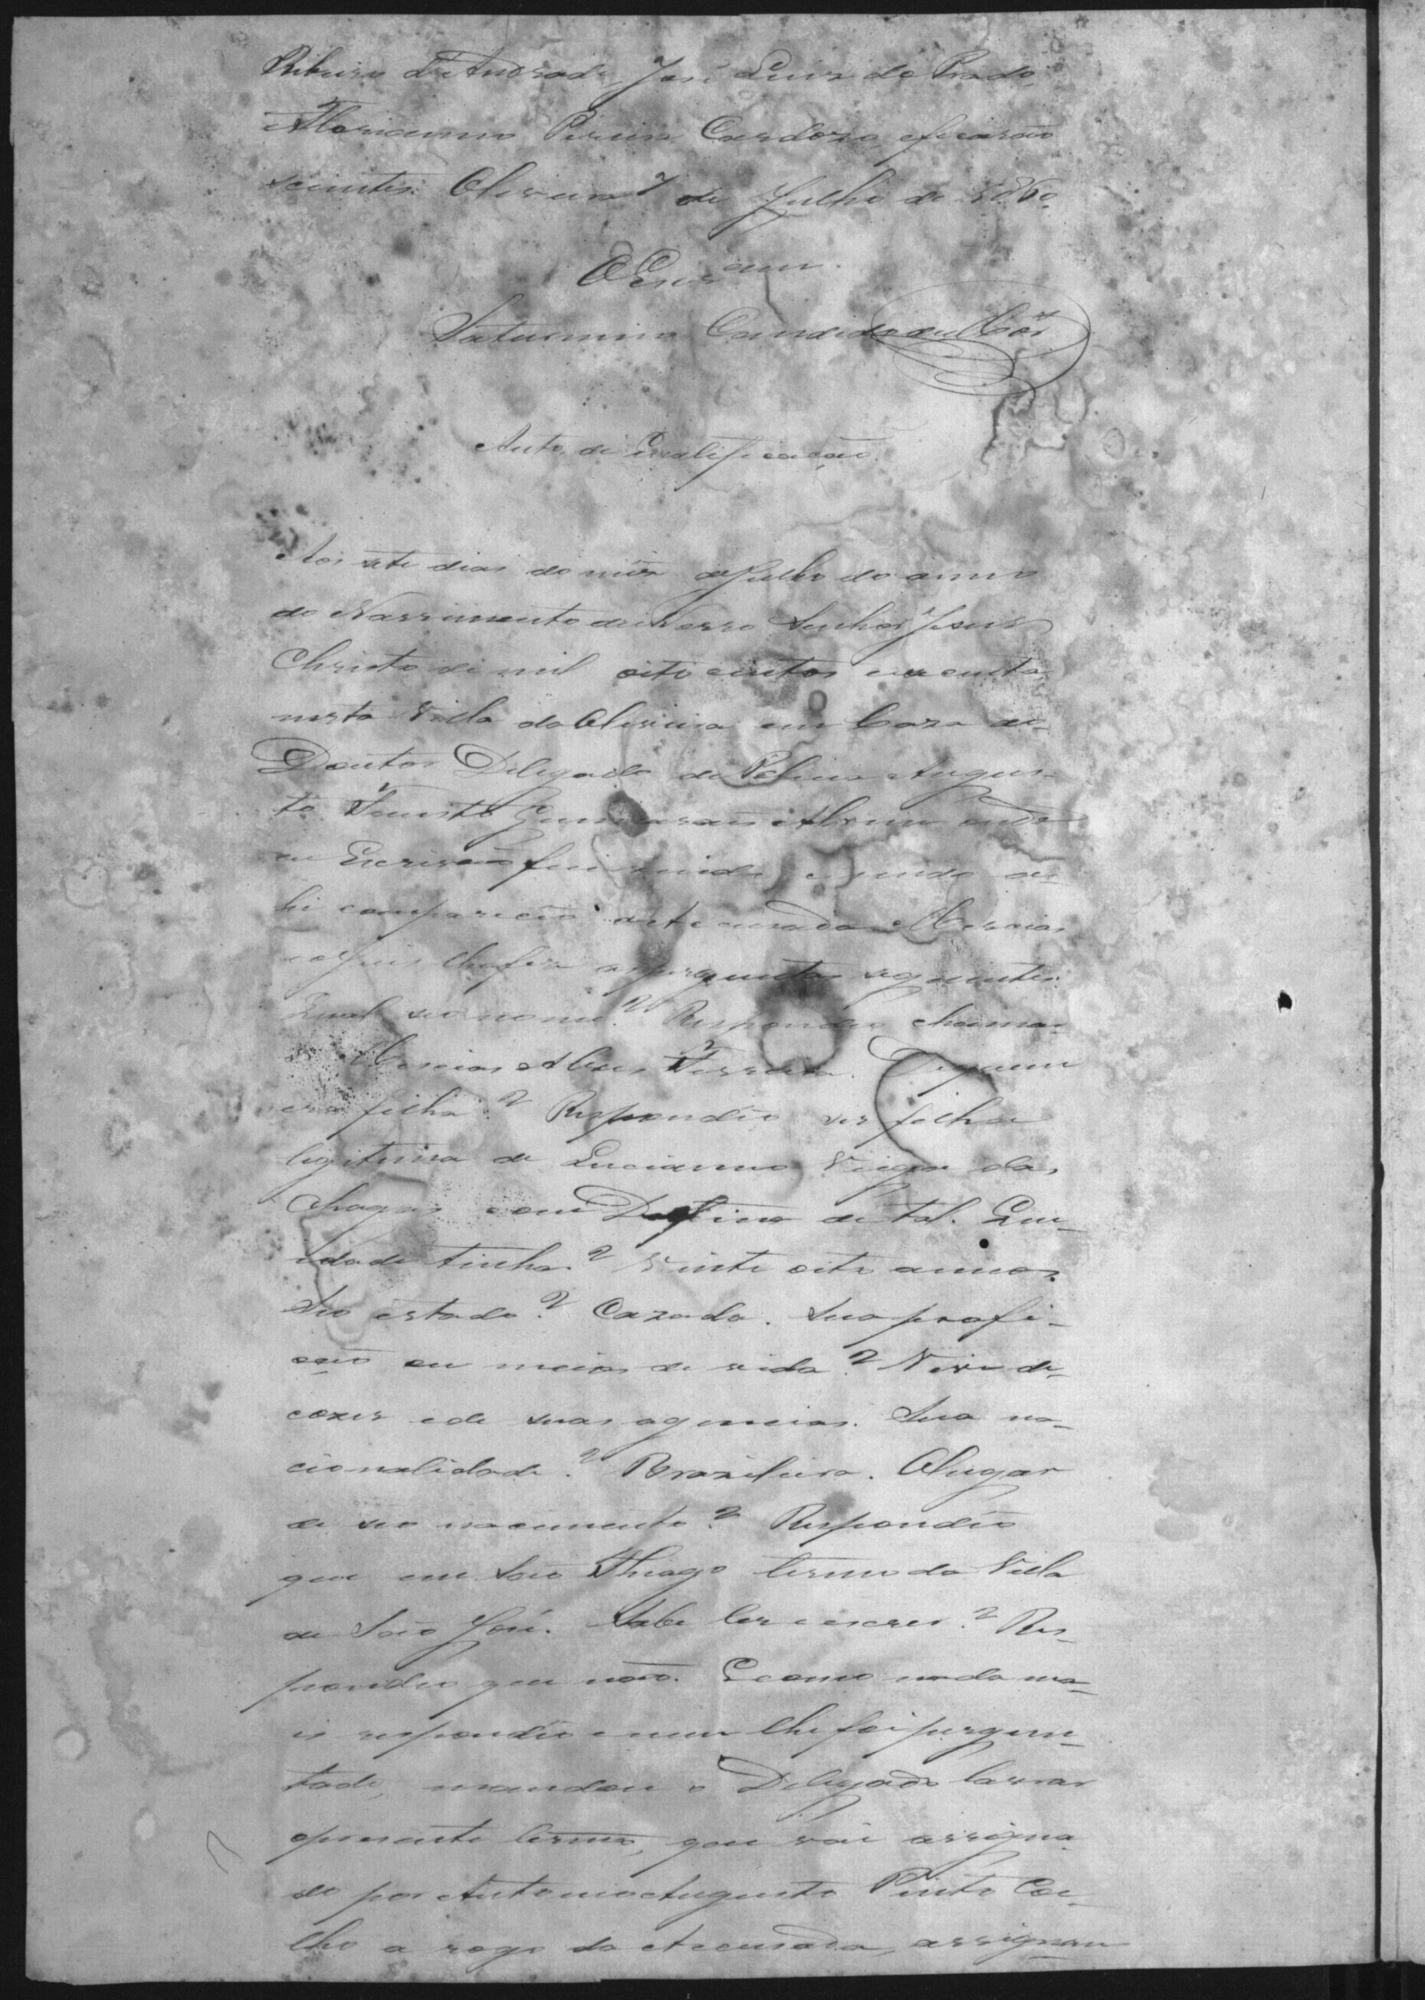 Ribeiro de Andrade, José Luiz do Prado,
e Florianno Pereira Cardozo, eficarão
scientes. Oliveira 7 de Julho de 1860.
O Escr.am
Saturnino Candido da
Auto de Qualificação.
Aos sete dias do mês de Julho do anno
do Nassimento de Nosso Senhor Jesus
Christo de mil oito centos e secenta
nesta Villa da Oliveira em Caza do
Doutor Delegado de Policia Augus-
to Fausto Guimarães Alvim onde
eu Escrivão fui vindo, e sendo a-
hi compareceo a Accusada Messias
o Juis lhe fez as perguntas seguintes:
Qual seo nome? Respondeo chamar
Messias Alves Ferreira. De quem
era filha? Respondeo ser filha
legitima de Lucianno Veiga das
Chagas com Delfina de tal. Que
idade tinha? Vinte oito annos.
Seo estado? Cazada. Sua profi-
ção ou meios de vida? Vive de
cozer e de suas agencias. Sua na-
cionalidade? Brazileira. O lugar
de seo nacimento? Respondeo
que em São Thiago termo da Villa
de São José. Sabe ler e escrever? Res-
pondeo que não. E como nada ma-
is respondeo e nem lhe foi pergun-
tado, mandou o Delegado lavrar
o presente termo, que vai assigna-
do por Antonio Augusto Pinto Coe-
lho a rogo da Accusada, assignou